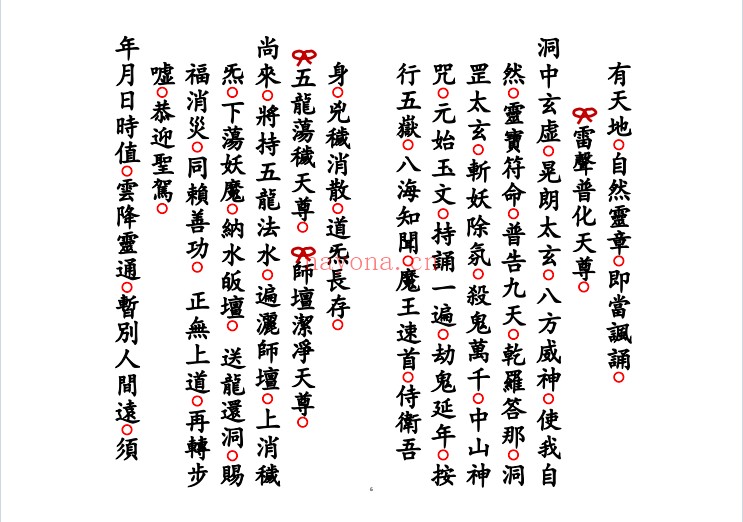 有天地○自然靈章○即當諷誦○
雷聲普化天尊○
洞中玄虛○晃朗太玄○八方威神○使我自
然○靈寶符命○普告九天○乾羅答那○洞
罡太玄○斬妖除氛○殺鬼萬千○中山神
咒○元始玉文○持誦一遍○劫鬼延年○按
行五嶽○八海知聞○魔王速首○侍衛吾
身○兇穢消散○道炁長存○
五龍蕩穢天尊○ 師壇潔凈天尊○
尚來○將持五龍法水○遍灑師壇○上消穢
炁○下蕩妖魔○納水皈壇○ 送龍還洞○賜
福消災○同賴善功○ 正無上道○再轉步
噓○恭迎聖駕○
年月日時值○雲降靈通○暫別人間遠○須
mayona.cn
6